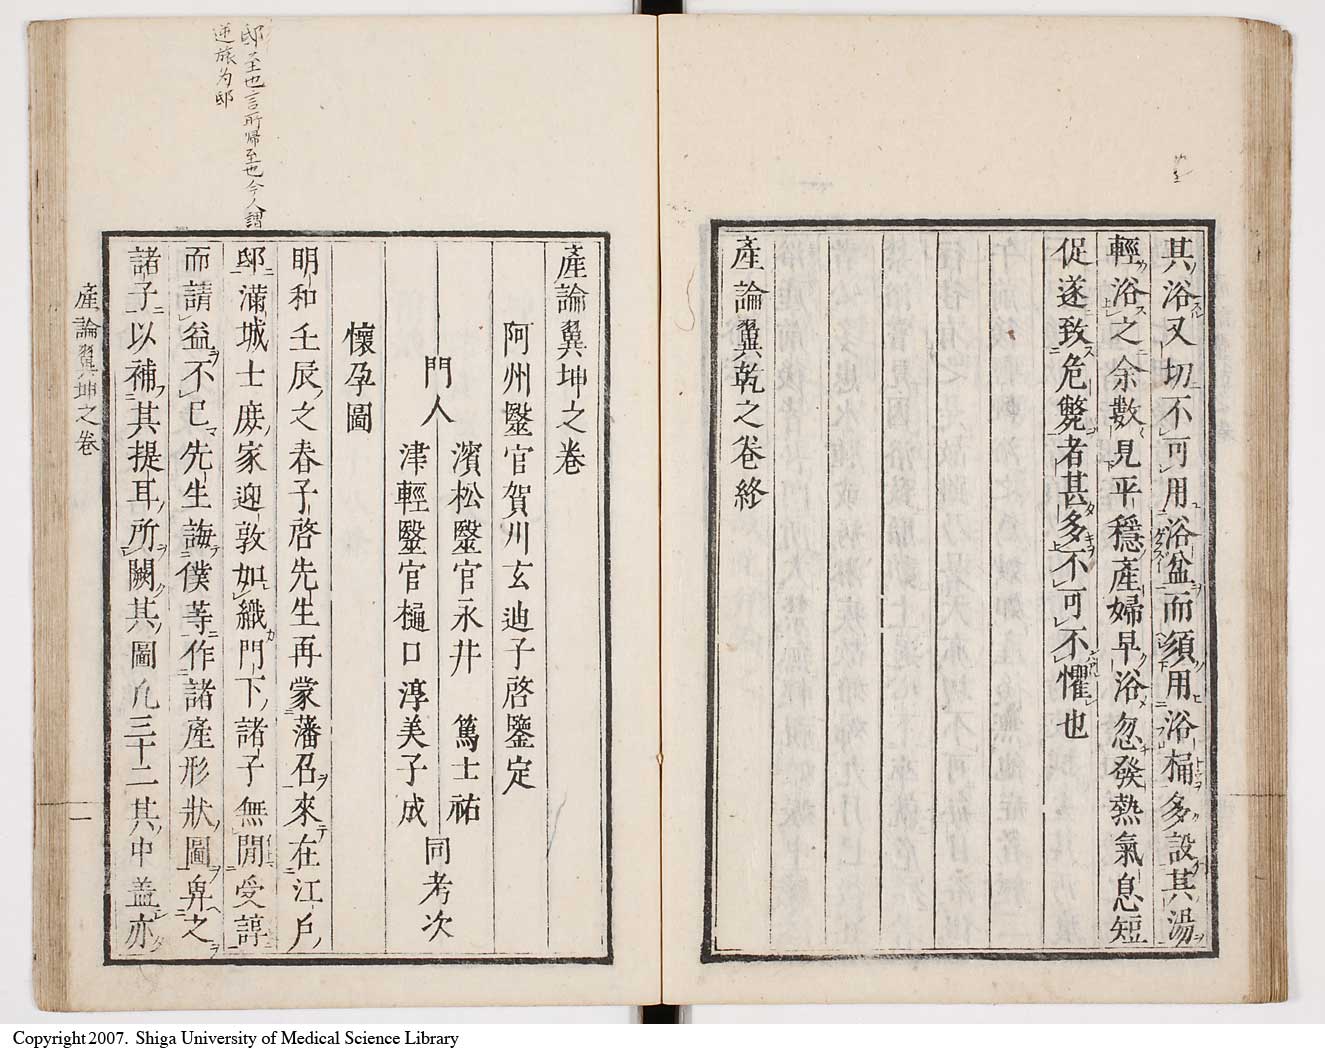 其浴又切不可用浴盆而須用浴桶多設其湯
輕浴之余數見平穩產婦早浴忽發熱氣息短
促遂致危斃者甚多不可不懼也
產論翼乾之卷終
邸至也言所歸至也今人謂
逆旅为邸
產論翼坤之卷
阿州毉官賀川玄迪子啓鑒定
門人
濱松毉官永井 篤士祐
津輕毉官樋口淳美子成
同考次
懷孕圖
明和壬辰之春子啓先生再蒙藩召來在江戶
邸滿城士庶家迎敦如織門下諸子無間受諄
而請益不已先生誨僕等作諸產形狀圖畀之
諸子以補其提耳所闕其圖凡三十二其中盖亦
產論翼坤之卷
一
Copyright 2007. Shiga University of Medical Science Library